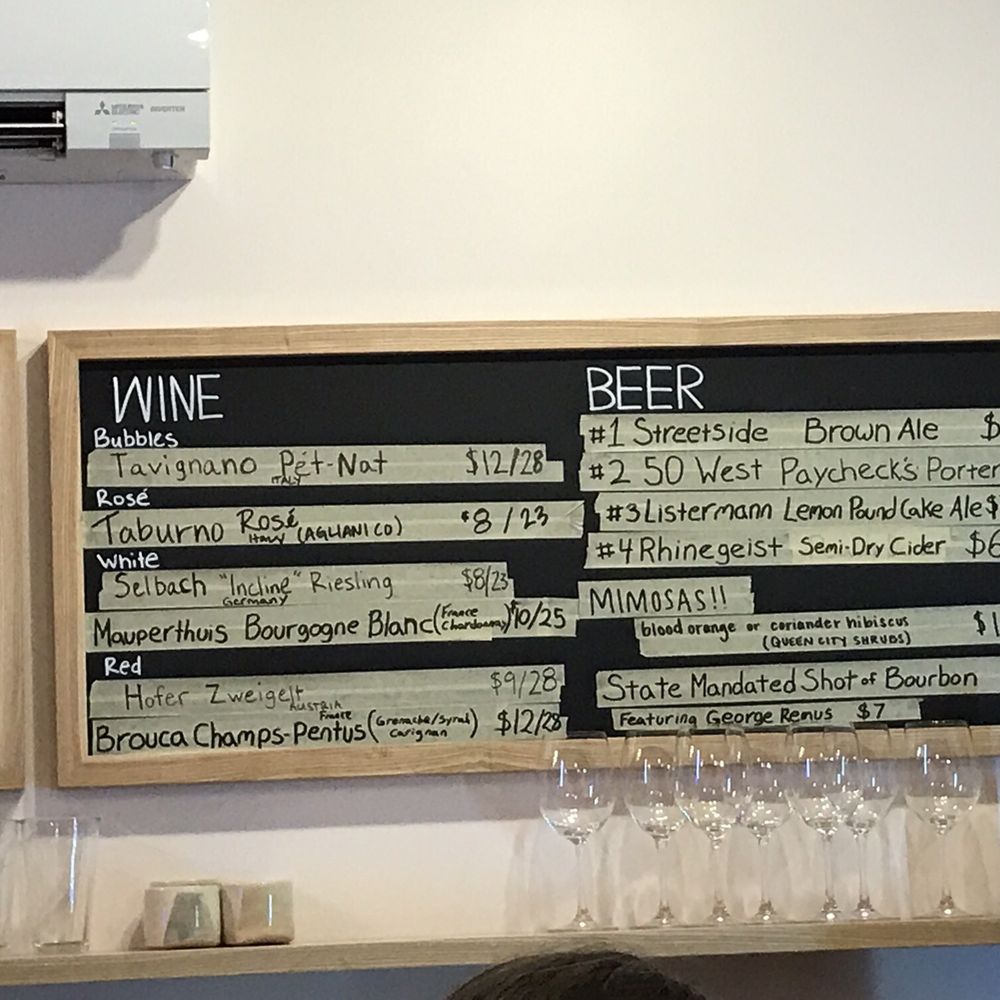 MITSUBISHI ELECTRIC INVERTER
WINE
Bubbles
Tavignano Pét-Nat $12/28
ITALY
Rosé
Taburno Rosé (AGLIANICO) $8/23
Italy
White
Selbach "Incline" Riesling $8/23
Germany
Mauperthuis Bourgogne Blanc (France Chardonnay) $10/25
Red
Hofer Zweigelt $9/28
AUSTRIA
France
Brouca Champs-Pentus (Grenache/Syrah Carignan) $12/28
BEER
#1 Streetside Brown Ale $
#2 50 West Paycheck's Porter
#3 Listermann Lemon Pound Cake Ale $
#4 Rhinegeist Semi-Dry Cider $6
MIMOSAS!!
blood orange or coriander hibiscus $1
(QUEEN CITY SHRUBS)
State Mandated Shot of Bourbon
Featuring George Remus $7